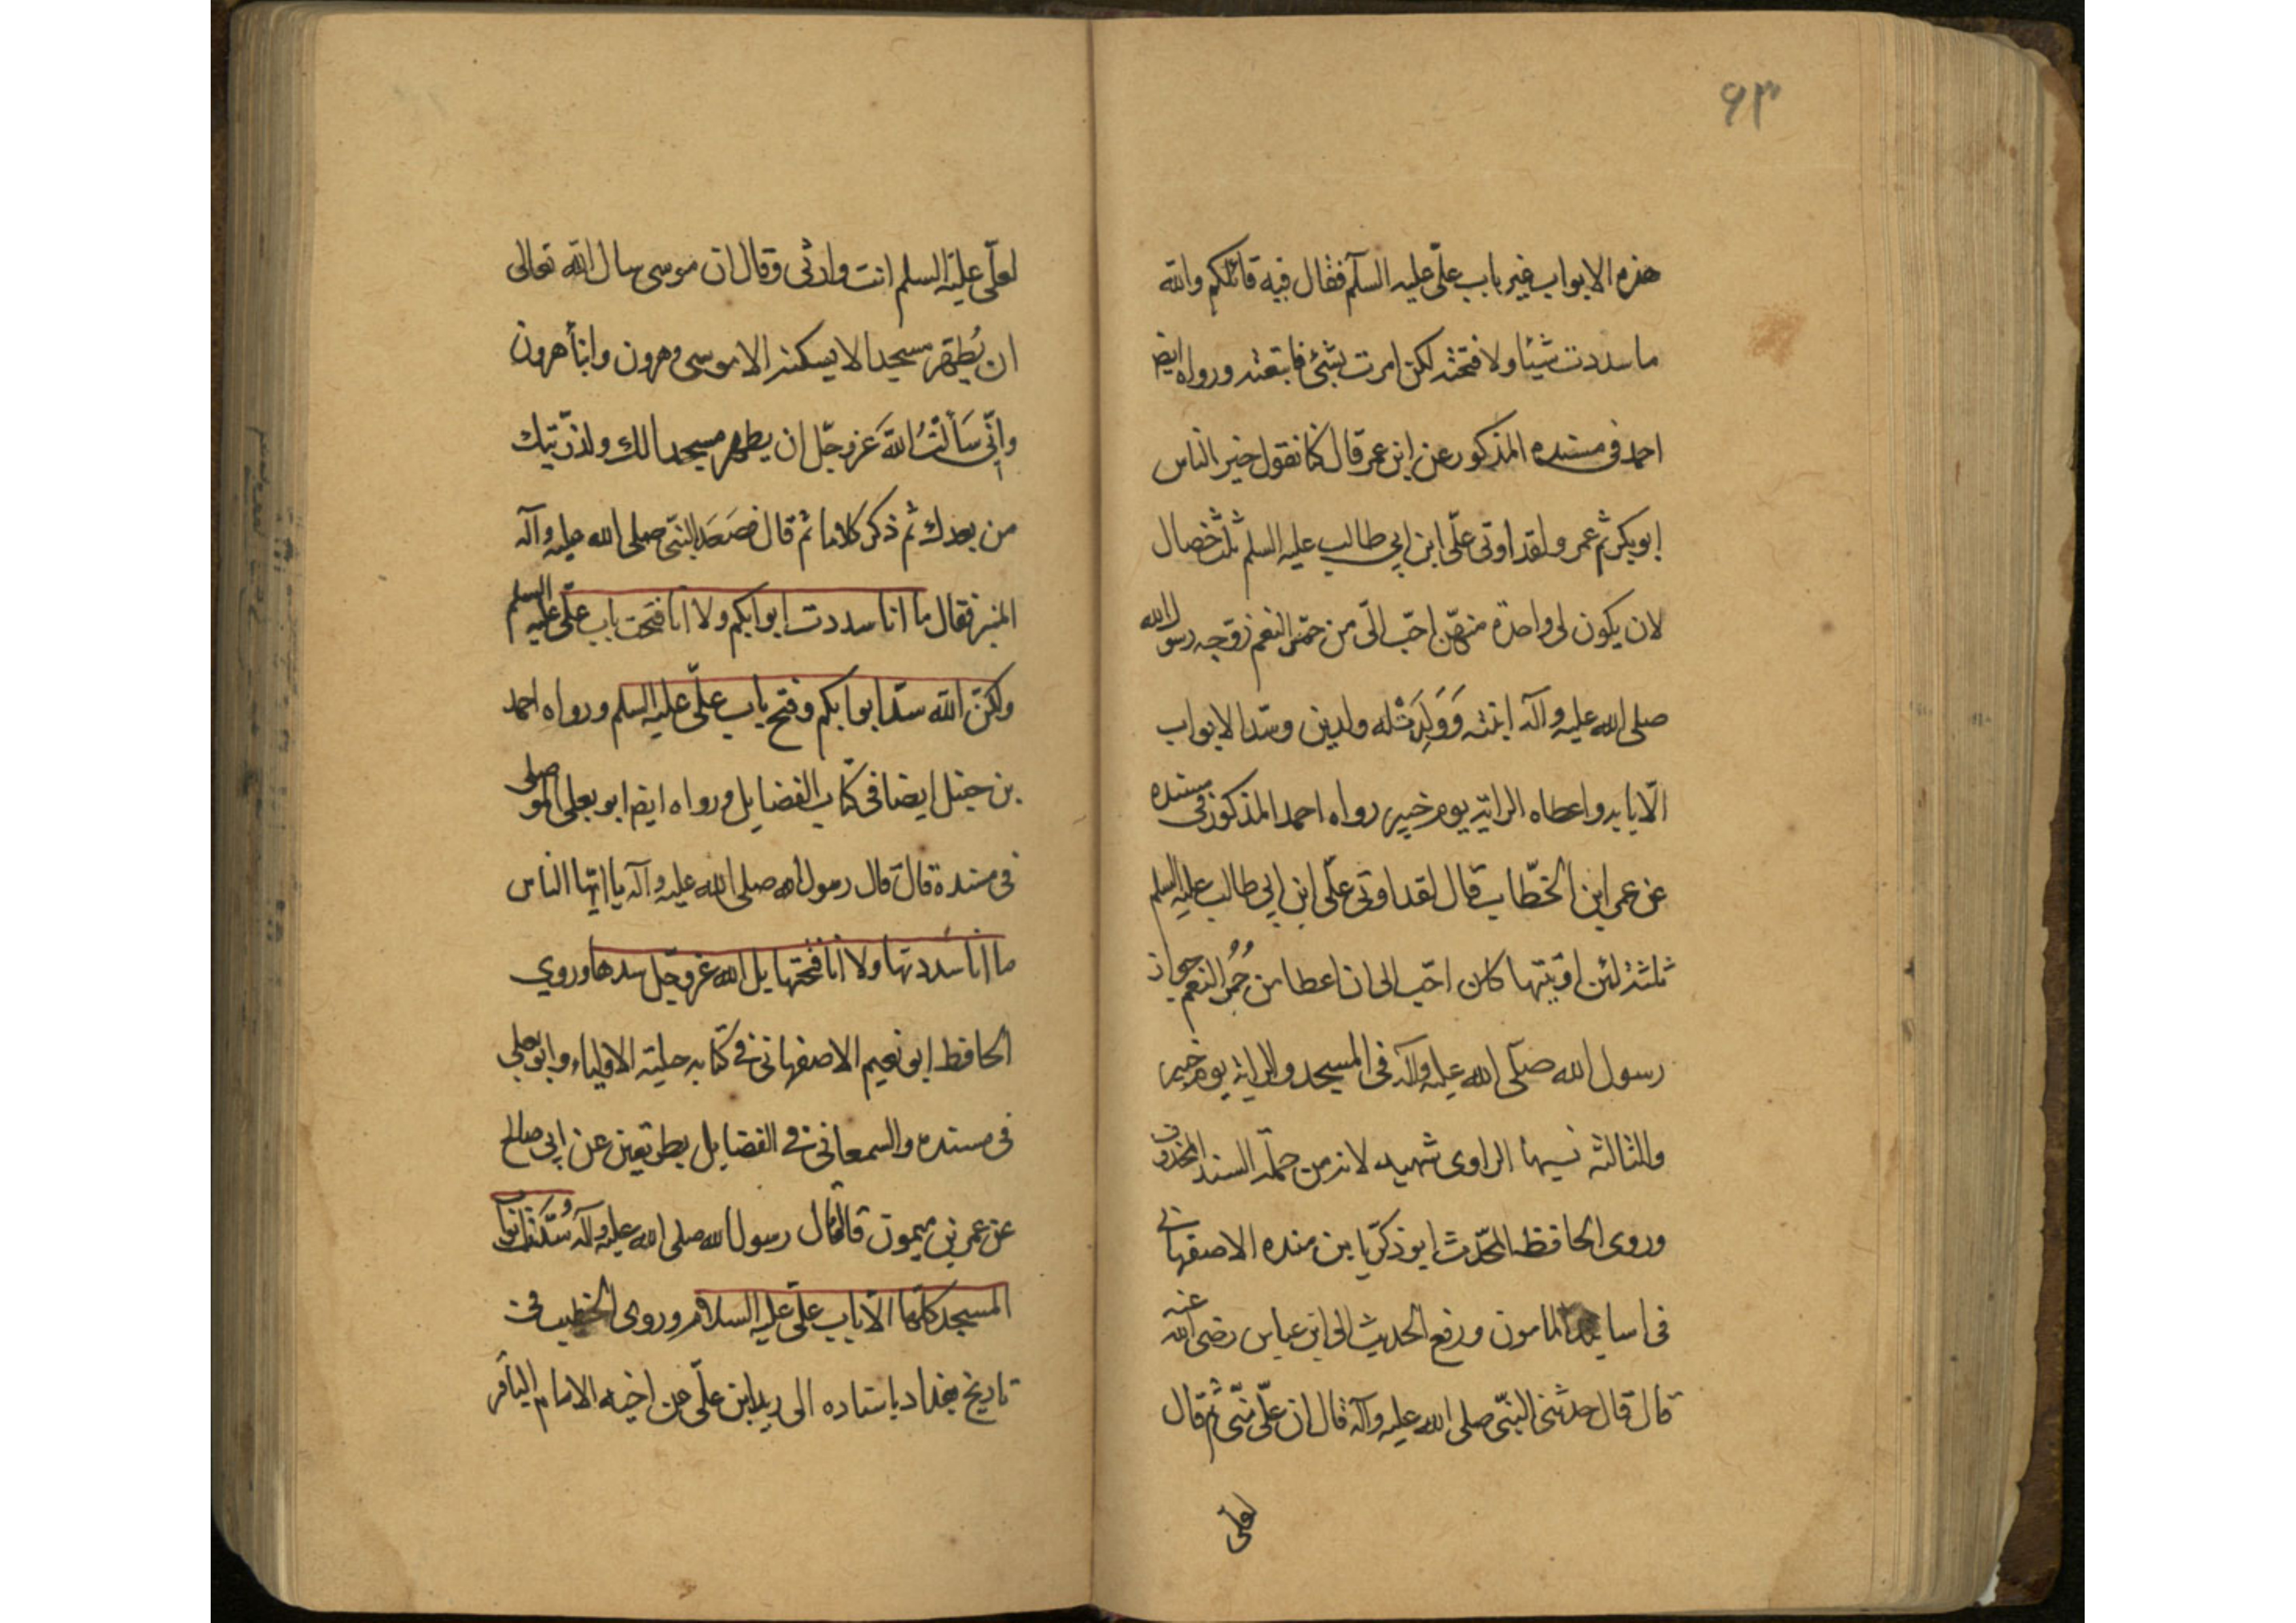 ٩٣
هذه الابواب غير باب علّى عليه السلم فقال فيه قائلكم والله
ما سددت شيئا ولا فتحته لكن امرت بشئ فاتبعته ورواه ايضا
احمد فى مسنده المذكور عن ابن عمر قال كنا نقول خير الناس
ابو بكر ثم عمر ولقد اوتى علّى ابن ابي طالب عليه السلم ثلث خصال
لان يكون لى واحدة منهنّ احبّ الىّ من حمر النعم زوّجه رسول الله
صلى الله عليه وآله ابنته وَوَلَدَتْ له ولدين وسّد الابواب
الّا بابه واعطاه الراية يوم خيبر رواه احمد المذكور فى مسنده
عن عمر ابن الخطّاب قال لقد اوتى علّى ابن ابي طالب عليه السلم
ثلثة لئن اوتيتها كان احبّ الى ان اعطا من حُمُر النعم جواز
رسول الله صلّى الله عليه وآله فى المسجد والراية يوم خيبر
والثالثة نسيها الراوى شهيد لانه من جملة السند المحذوف
وروى الحافظ المحدّث ابو زكريّا بن منده الاصفهانى
فى اسانيد المامون ورفع الحديث الى ابن عباس رضى الله عنه
قال قال حدثنى النبّى صلى الله عليه وآله قال ان علّى منّى ثم قال
لعلّى
لعلّى عليه السلم انت وارثى وقال ان موسى سال الله تعالى
ان يُطهّر مسجدا لا يسكنه الا موسى وهرون وابنا هرون
وإنّى سَألتُ اللهَ عز وجّل ان يطهر مسجدا لك ولذرّيتك
من بعدك ثم ذكر كلاما ثم قال فصَعَدَ النبّى صلى الله عليه وآله
المنبر فقال ما انا سددت ابوابكم ولا انا فتحت باب علّى عليه السلم
ولكنّ الله سدّ ابوابكم وفتح باب علّى عليه السلم ورواه احمد
بن حنبل ايضا فى كتاب الفضايل ورواه ايضا ابو يعلى الموصلى
فى مسنده قال قال رسول الله صلى الله عليه وآله يا ايّها الناس
ما انا سددتها ولا انا فتحتها بل الله عز وجّل سدها وروي
الحافظ ابو نعيم الاصفهانى فى كتابه حلية الاولياء وابو يعلى
فى مسنده والسمعانى فى الفضايل بطريقين عن ابى صالح
عن عمر بن ميمون قال قال رسول الله صلى الله عليه وآله سُدّوا ابواب
المسجد كلّها الّا باب علّى عليه السلام وروى الخطيب فى
تاريخ بغداد باسناده الى زيد ابن علّى عن اخيه الامام الباقر